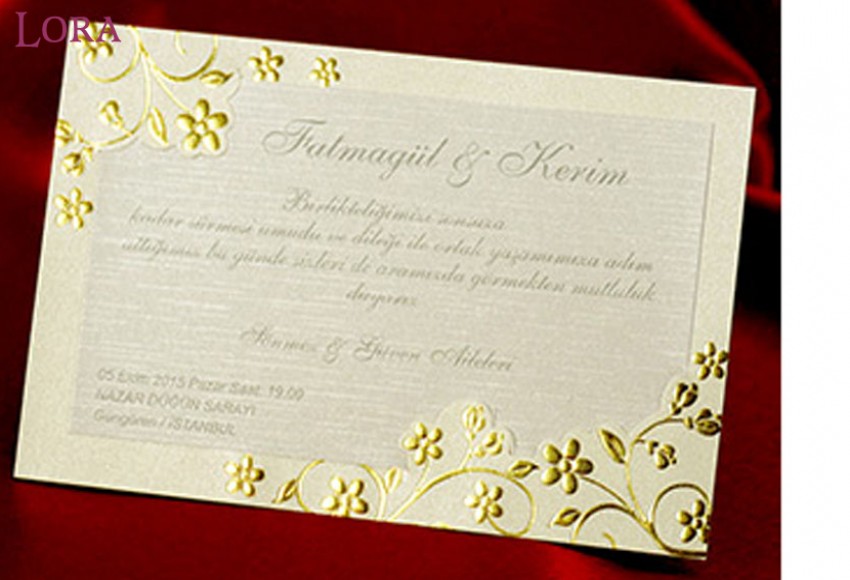 LORA
Fatmagül & Kerim
Birlikteliğimizi sonsuza
kadar sürmesi umudu ve dileği ile ortak yaşamımıza adım
attığımız bu günde sizleri de aramızda görmekten mutluluk
duyarız
Sönmez & Güven Aileleri
05 Ekim 2015 Pazar Saat: 19.00
NAZAR DÜĞÜN SARAYI
Güngören / İSTANBUL